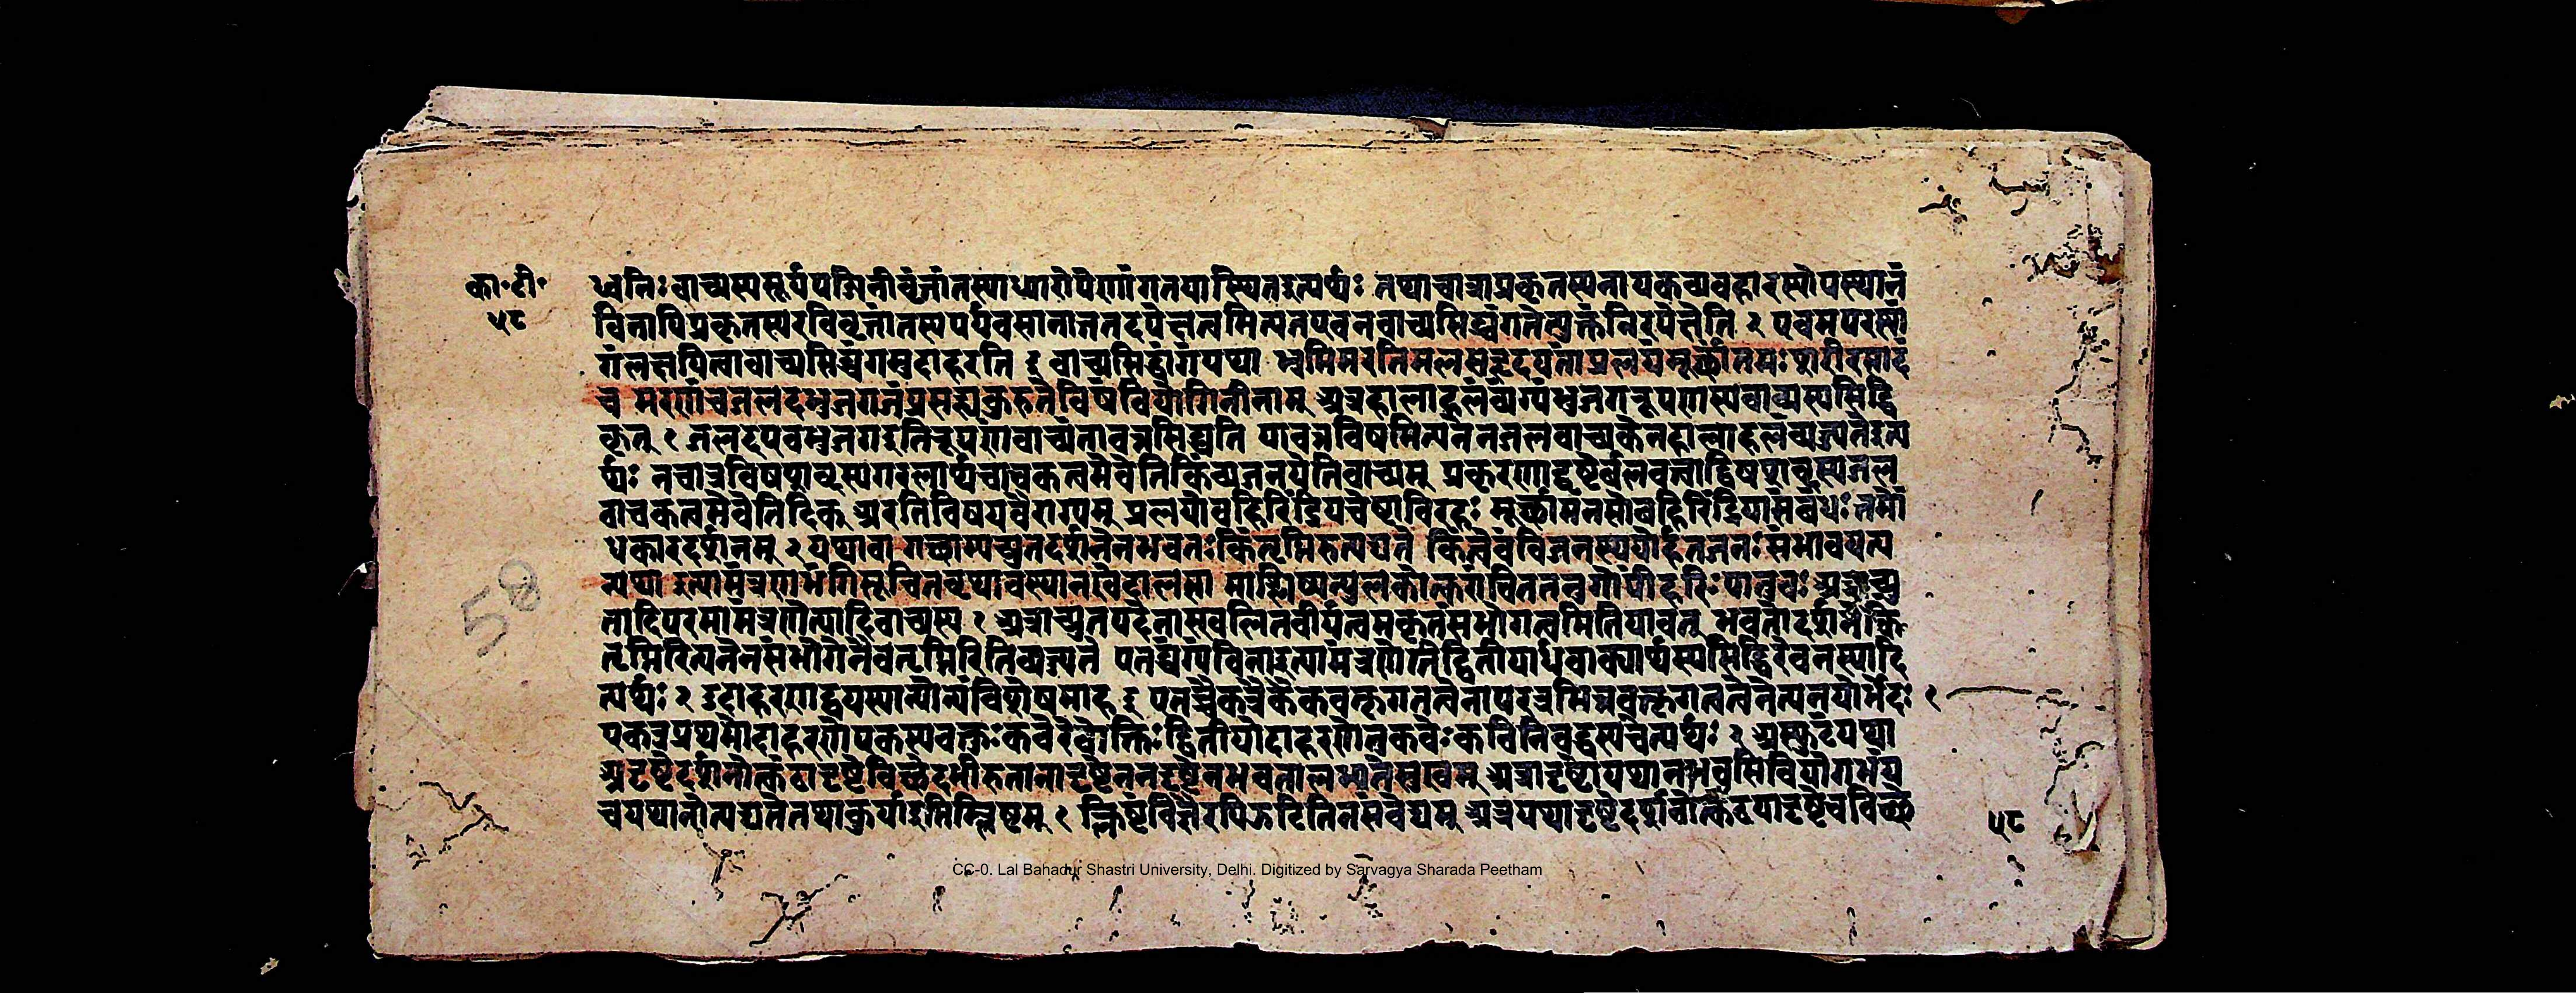 का॰टी॰
५८
ध्वनिः वाच्यस्यसूर्यपद्मिनीवृत्तांतस्याध्यारोपेणांगतयास्थितइत्यर्थः तथाचात्राप्रकृतस्यनायकव्यवहारस्योपस्थानं
विनापिप्रकृतस्यरविवृत्तांतस्यपर्यवसानान्नतदपेक्षत्वमित्यतएवनवाच्यसिद्ध्यंगतेत्युक्तंनिरपेक्षेति २ एवमपरस्यां
गंलक्षयित्वावाच्यसिद्ध्यंगमुदाहरति इ वाच्यसिद्ध्यंगंयथा भ्रमिमरतिमलसहृदयतांप्रलयंमूर्छांतमःशरीरसादं
च मरणंचजलदभुजगजंप्रसह्यकुरुतेविषंवियोगिनीनाम् अत्रहालाहलंव्यंग्यंभुजगरूपणस्यवाच्यस्यसिद्धि
कृत् १ जलदएवभुजगइतिरूपणंवाच्यंतावन्नसिद्ध्यति यावन्नविषमित्यनेनजलवाच्यकेनहालाहलंव्यज्यतेइत्य
र्थः नचात्रविषशब्दस्यगरलार्थवाचकत्वमेवेतिकिंव्यंजनयेतिवाच्यम् प्रकरणाद्दृष्टेर्बलवत्त्वाद्विषशब्दस्यजल
वाचकत्वमेवेतिदिक् अरतिविषयवैराग्यम् प्रलयोबहिरिंद्रियचेष्टाविरहः मूर्छामनसोबहिरिंद्रियासंबंधः तमों
धकारदर्शनम् २ यथावा गच्छाम्यच्युतदर्शनेनभवतःकिंतृप्तिरुत्पद्यते किंत्वेवंविजनस्थयोर्हतजनःसंभावयत्य
न्यथा इत्यामंत्रणभंगिसूचितवृथावस्थानखेदालसा माश्लिष्यन्पुलकोत्करांचिततनुर्गोपींहरिःपातुवः अत्राच्यु
तादिपदमामंत्रणेत्यादिवाच्यस्य १ अत्राच्युतपदेनास्खलितवीर्यत्वमकृतसंभोगत्वमितियावत् भवतोदर्शनेनकिं
तृप्तिरित्यनेनसंभोगेनैवतृप्तिरितिव्यज्यते एतद्व्यंग्यंविनाइत्यामंत्रणेतिद्वितीयार्धवाक्यार्थस्यसिद्धिरेवनस्यादि
त्यर्थः २ उदाहरणद्वयस्यान्योन्यंविशेषमाह इ एतच्चैकत्रैकवक्तृगतत्वेनापरत्रभिन्नवक्तृगतत्वेनेत्यनयोर्भेदः १
एकत्रप्रथमोदाहरणेएकस्यवक्तुःकवेरेवोक्तिः द्वितीयोदाहरणेतुकवेःकविनिबद्धस्यचेत्यर्थः २ अस्फुटंयथा
अदृष्टेदर्शनोत्कंठादृष्टेविच्छेदभीरुतानादृष्टेननदृष्टेनभवतालभ्यतेसुखम् अत्रादृष्टोयथानभवसिवियोगभयं
चयथानोत्पद्यतेतथाकुर्याइतिक्लिष्टम् १ क्लिष्टंविज्ञैरपिझटितिनसंवेद्यम् अत्रयथादृष्टेदर्शनोत्कंठयादृष्टेचविच्छे
५८
58
CC-0. Lal Bahadur Shastri University, Delhi. Digitized by Sarvagya Sharada Peetham